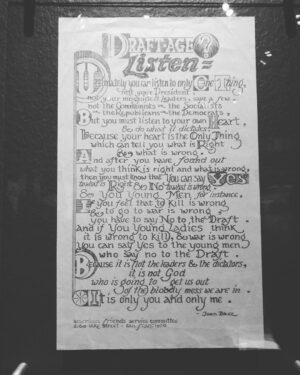 DRAFT-AGE?
Listen=
Ultimately you can listen to only One Thing,
not your President,
not your misguided leaders, save a few,
not the Communists or the Socialists
or the Republicans or the Democrats
But you must listen to your own Heart,
& do what it dictates.
Because your heart is the Only Thing
which can tell you what is Right
& what is wrong.
And after you have found out
what you think is right and what is wrong,
then you must know that You can say Yes
to what is Right & No to what is wrong.
& you Young Men, for instance,
If you feel that to Kill is wrong
& to go to war is wrong,
you have to say No to the Draft.
and if You Young Ladies think
it is wrong to kill, & war is wrong
you can say Yes to the young men
who say no to the Draft.
Because it is not the leaders & the dictators,
it is not God
who is going to get us out
of the bloody mess we are in
It is only you and only me.
- Joan Baez
American Friends Service Committee
2160 Lake Street - San Francisco